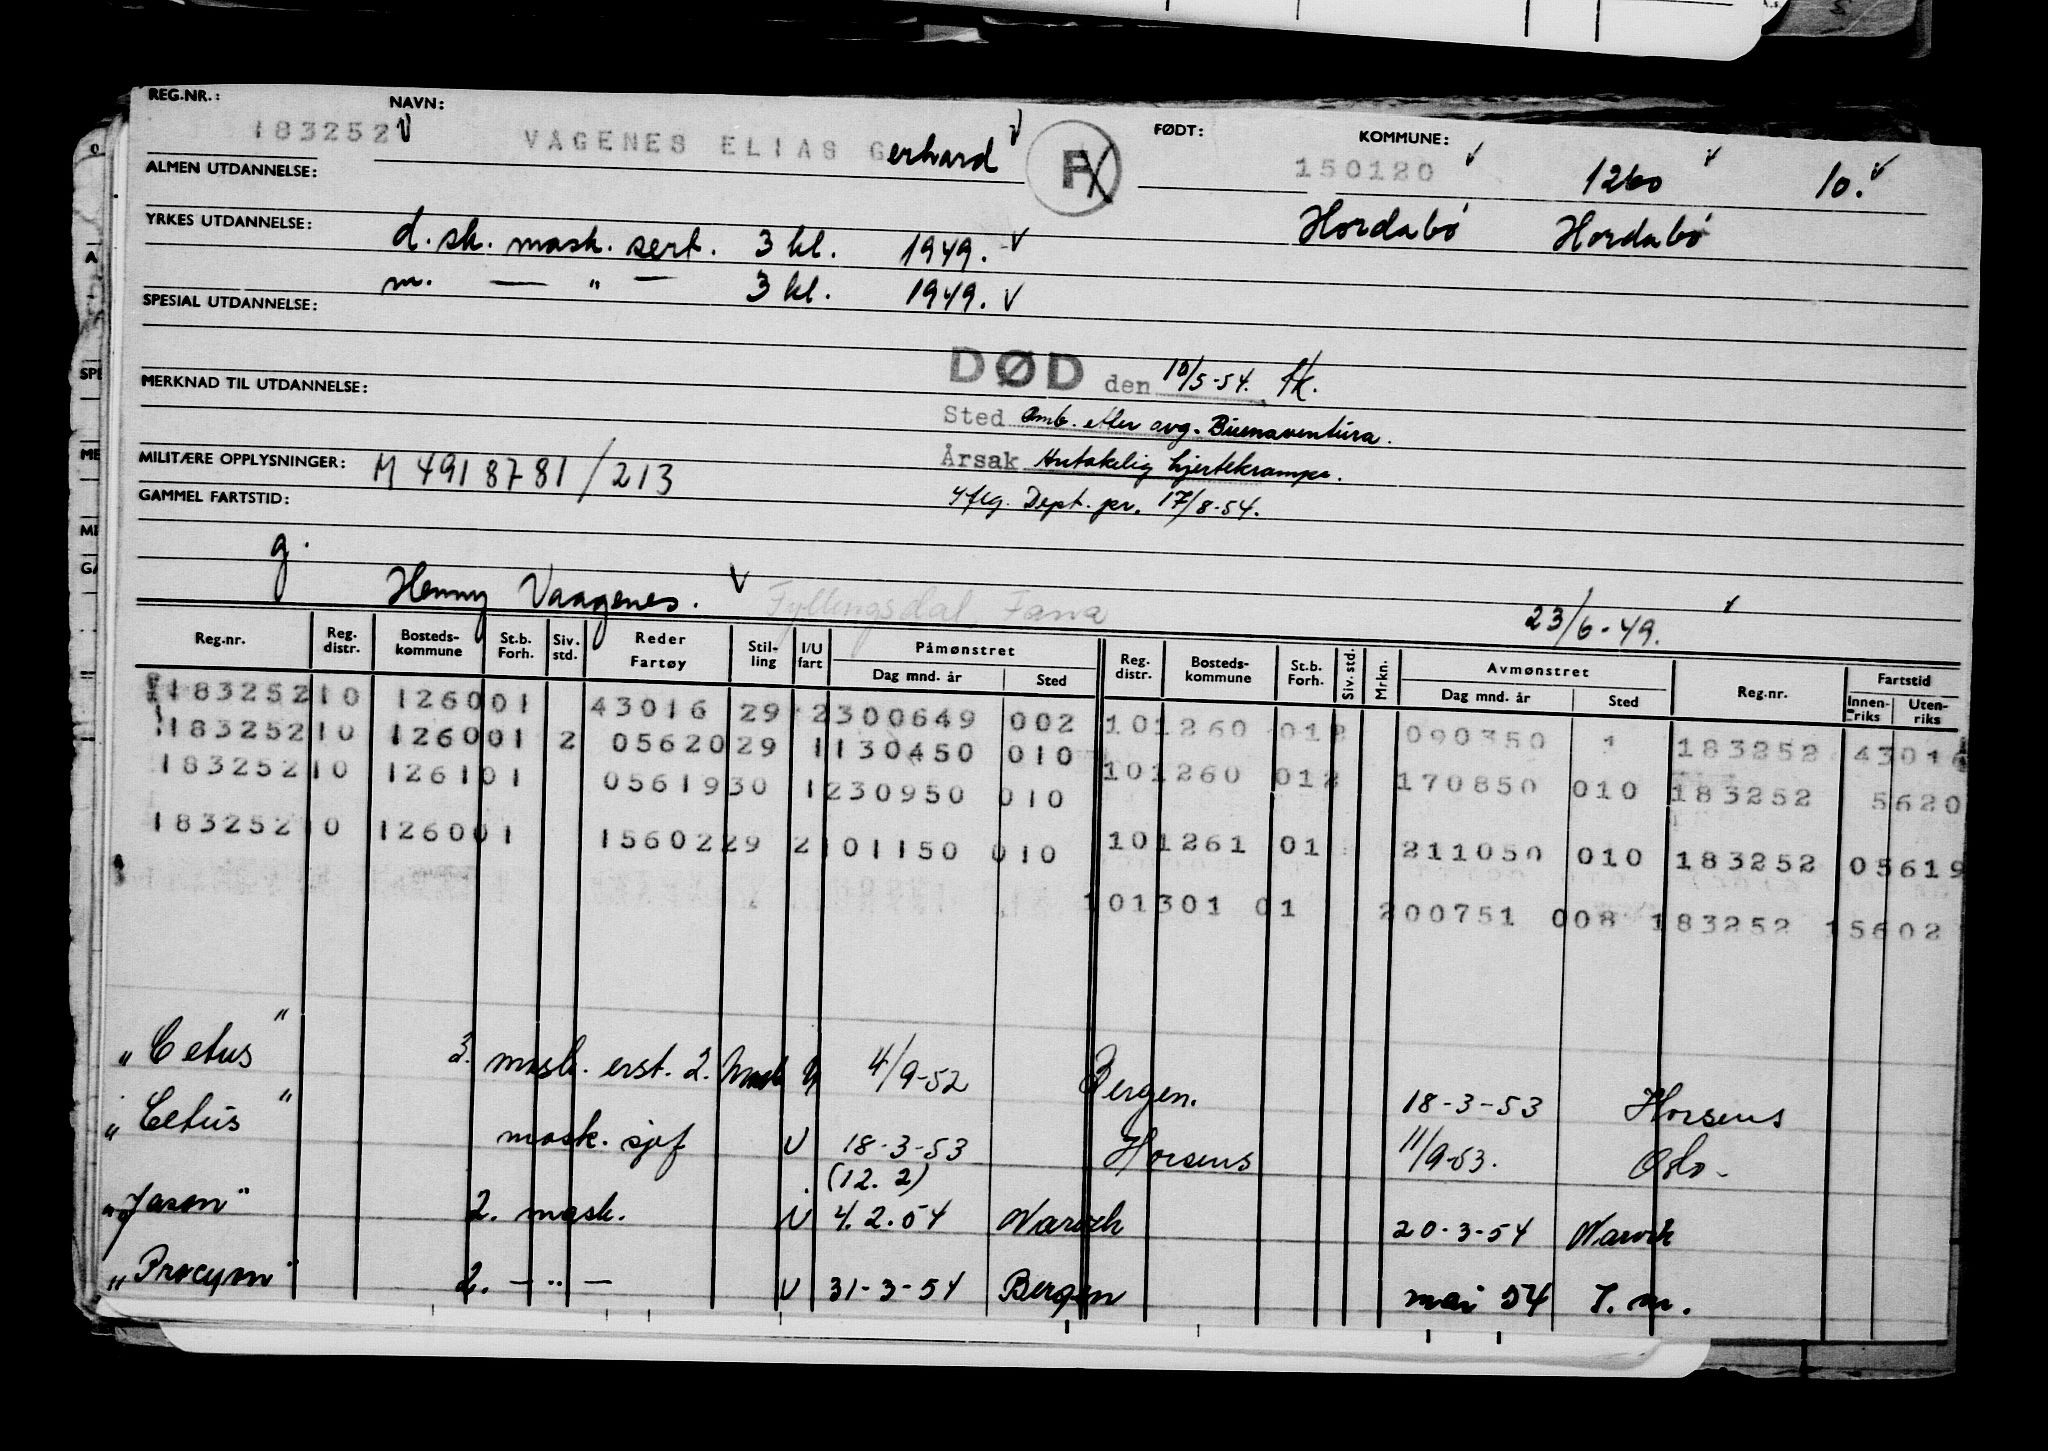 REG.NR.: NAVN: FØDT: KOMMUNE:
183252 VAGENES ELIAS Gerhard 150120 1260 10.
ALMEN UTDANNELSE:
Hordabó Hordabó
YRKES UTDANNELSE: d. sk. mask. sert. 3 kl. 1949.
m. — " — 3 kl. 1949.
SPESIAL UTDANNELSE:
DØD den 10/5-54. fk.
MERKNAD TIL UTDANNELSE:
Sted Omb. etter avg. Buenaventura.
MILITÆRE OPPLYSNINGER: M 4918781/213
Årsak Antakelig hjertekrampe.
GAMMEL FARTSTID:
Iflg. Dept. pr. 17/8-54.
g.
Henny Vaagenes. Fyllingsdal Fana 23/6-49.
Reg.nr. Reg. distr. Bosteds-kommune St.b. Forh. Siv. std. Reder Fartøy Stil-ling I/U fart Påmønstret Dag mnd. år Sted Reg. distr. Bosteds-kommune St.b. Forh. Siv. std. Mrkn. Avmønstret Dag mnd. år Sted Reg.nr. Fartstid Innen-riks Uten-riks
183252 10 1260 01 43016 29 2 300649 002 10 1260 01 2 090350 183252 43016
183252 10 1260 01 2 05620 29 1 130450 010 10 1260 01 2 170850 010 183252 5620
183252 10 1261 01 05619 30 1 230950 010 10 1261 01 211050 010 183252 05619
183252 10 1260 01 15602 29 2 101150 010 10 1301 01 200751 008 183252 15602
"Cetus" 3. mask. erst. 2. mask U 4/9-52 Bergen. 18-3-53 Horsens
"Cetus" mask. sjef U 18-3-53 Horsens 11/9-53. Oslo-
(12. 2)
"Jason" 2. mask. U 4.2.54 Narvik 20-3-54 Narvik
"Procyon" 2. — " — U 31-3-54 Bergen mai 54 T. m.